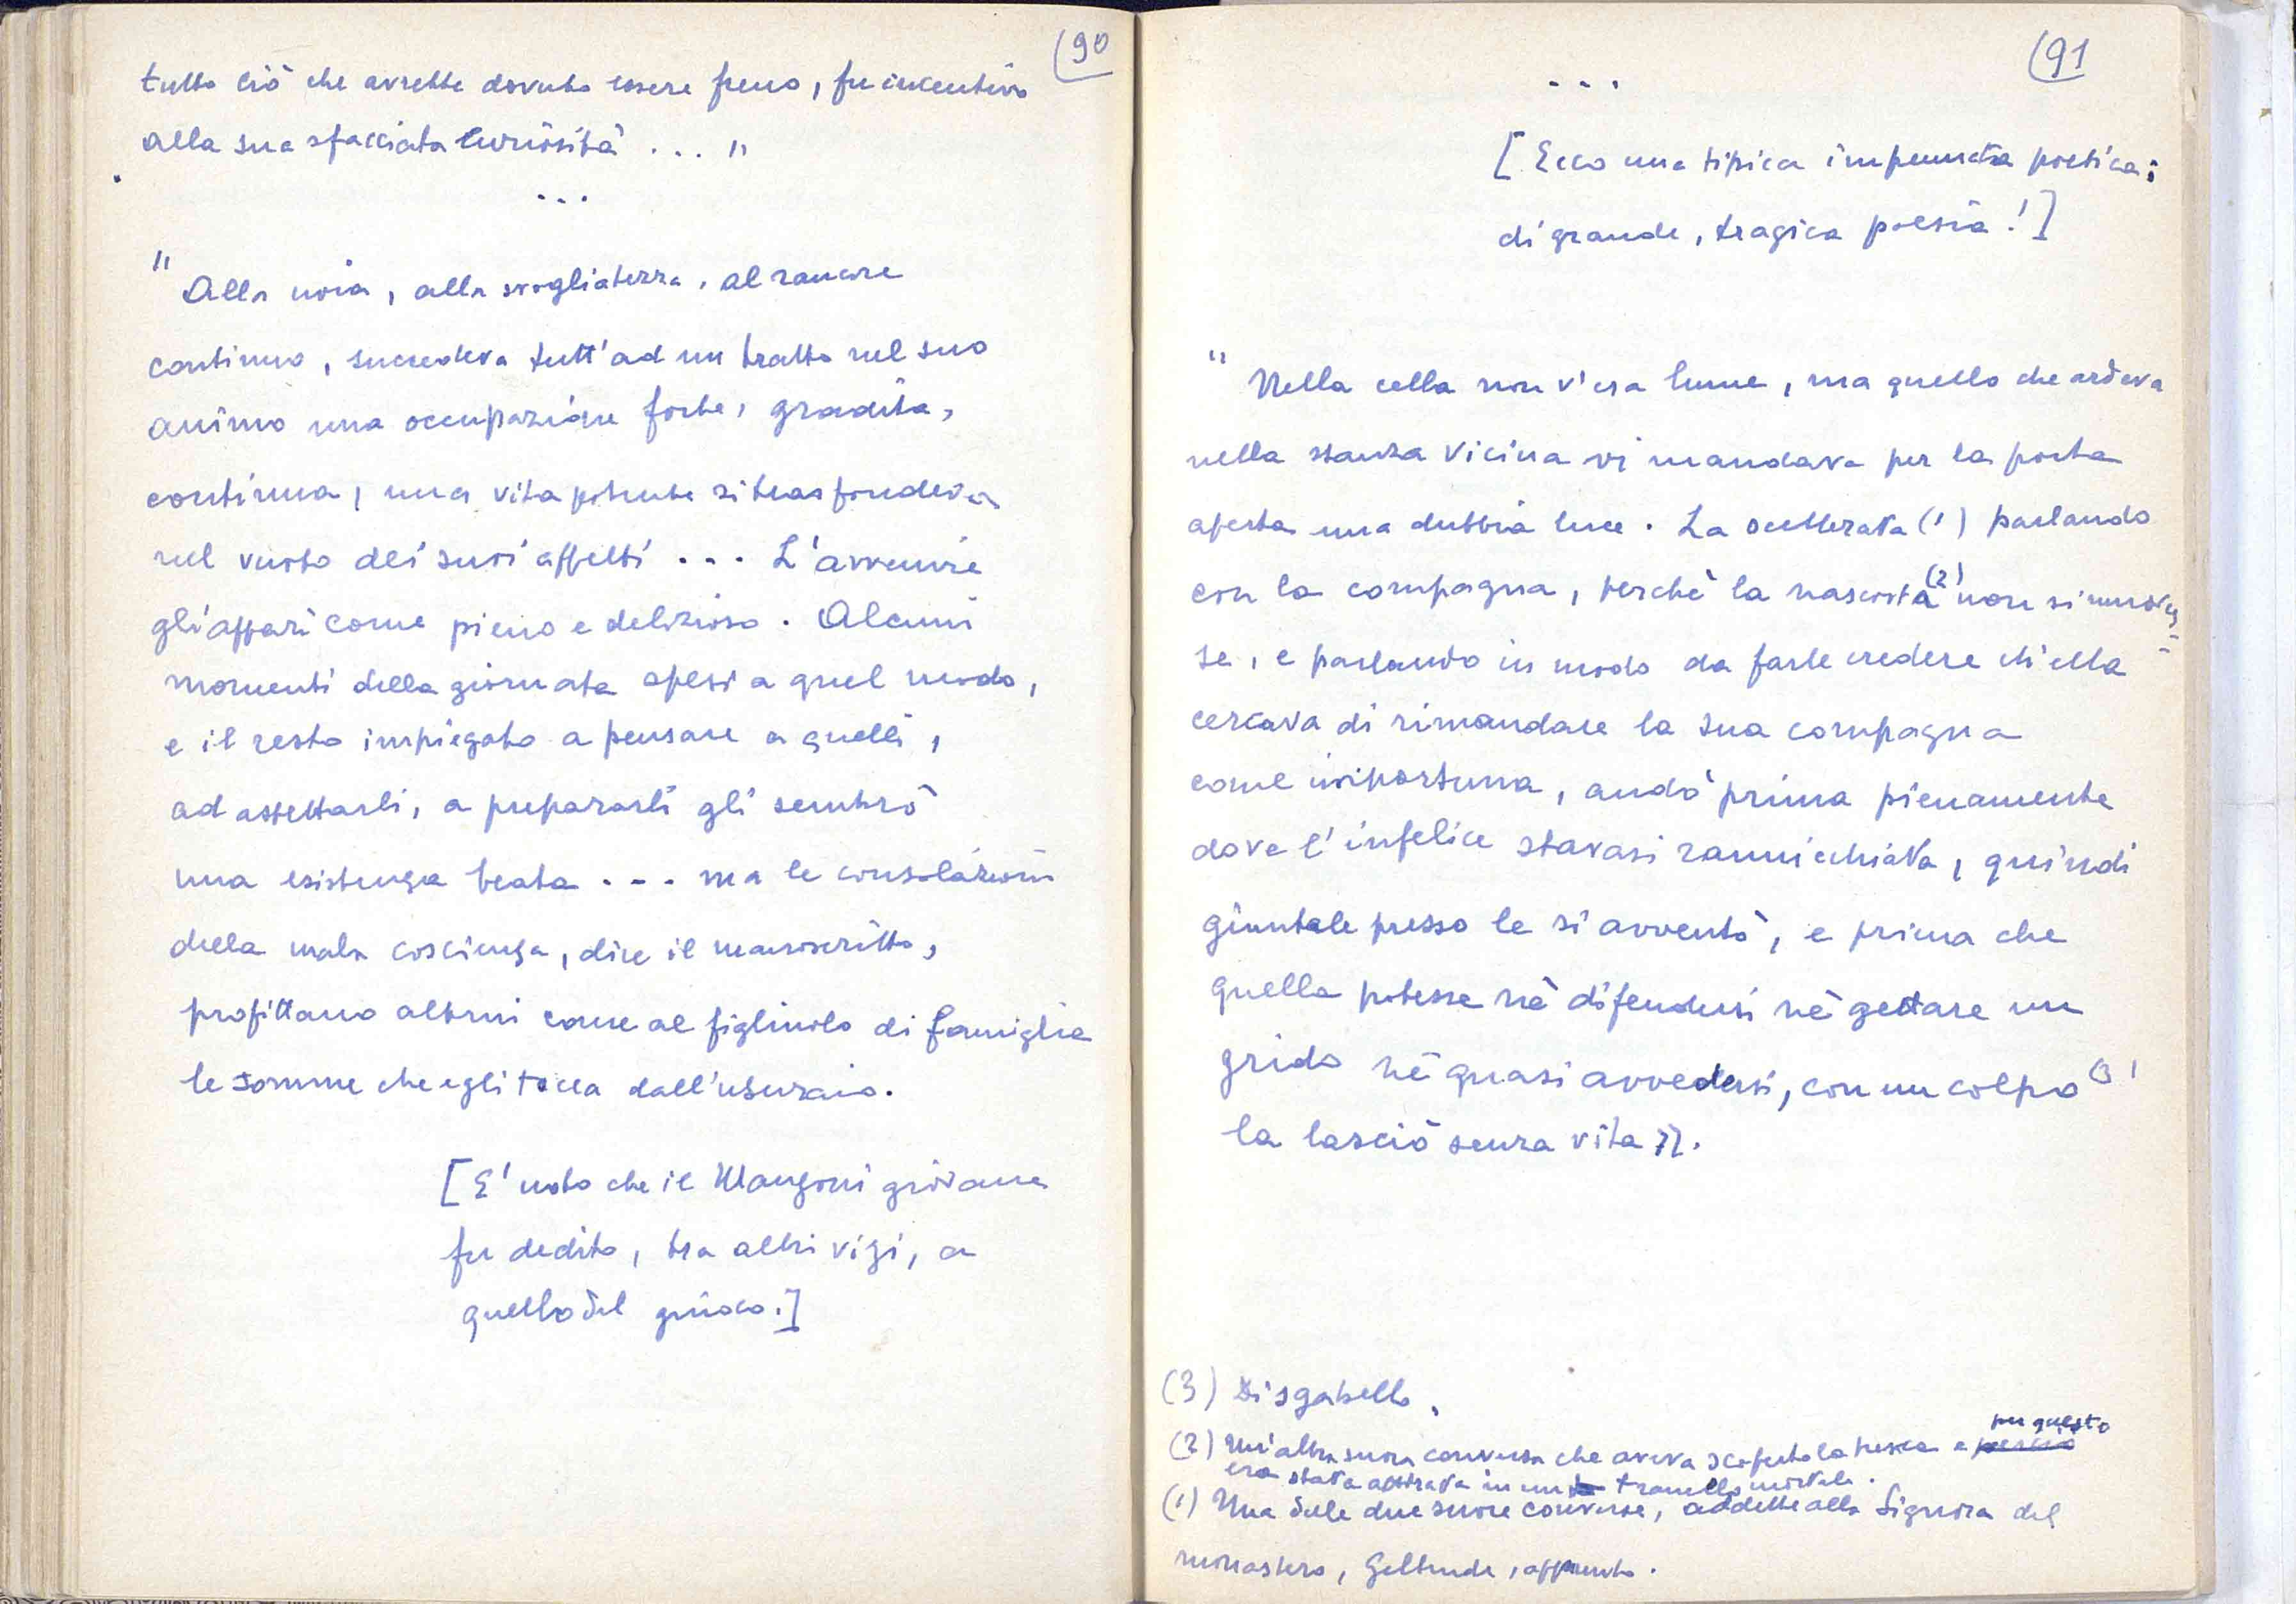 (90
tutto ciò che avrebbe dovuto essere freno, fu incentivo
alla sua sfacciata curiosità . . . "
. . .
" Alla noia, alla svogliatezza, al rancore
continuo, succedeva tutt'ad un tratto nel suo
animo una occupazione forte, gradita,
continua, una vita potente si trasfondeva
nel vuoto dei suoi affetti . . . L'avvenire
gli apparì come pieno e delizioso. Alcuni
momenti della giornata spesi a quel modo,
e il resto impiegato a pensare a quelli,
ad aspettarli, a prepararli gli sembrò
una esistenza beata . . . ma le consolazioni
della mala coscienza, dice il manoscritto,
profittano altrui come al figliuolo di famiglia
le somme che egli tocca dall'usuraio.
[E' noto che il Manzoni giovane
fu dedito, tra altri vizi, a
quello del giuoco.]
(91
. . .
[Ecco una tipica impennata poetica;
di grande, tragica poesia!]
" Nella cella non v'era lume, ma quello che ardeva
nella stanza vicina vi mandava per la porta
aperta una dubbia luce. La scellerata (1) parlando
con la compagna, perchè la nascosta (2) non si muoves=
se, e parlando in modo da farle credere ch'ella
cercava di rimandare la sua compagna
come importuna, andò prima pienamente
dove l'infelice stavasi rannicchiata, quindi
giuntale presso le si avventò, e prima che
quella potesse nè difendersi nè gettare un
grido nè quasi avvedersi, con un colpo (3)
la lasciò senza vita ".
(3) Di sgabello.
(2) Un'altra suora conversa che aveva scoperto la tresca e per questo
era stata attirata in un tranello mortale.
(1) Una delle due suore converse, addette alla Signora del
monastero, Geltrude, appunto.